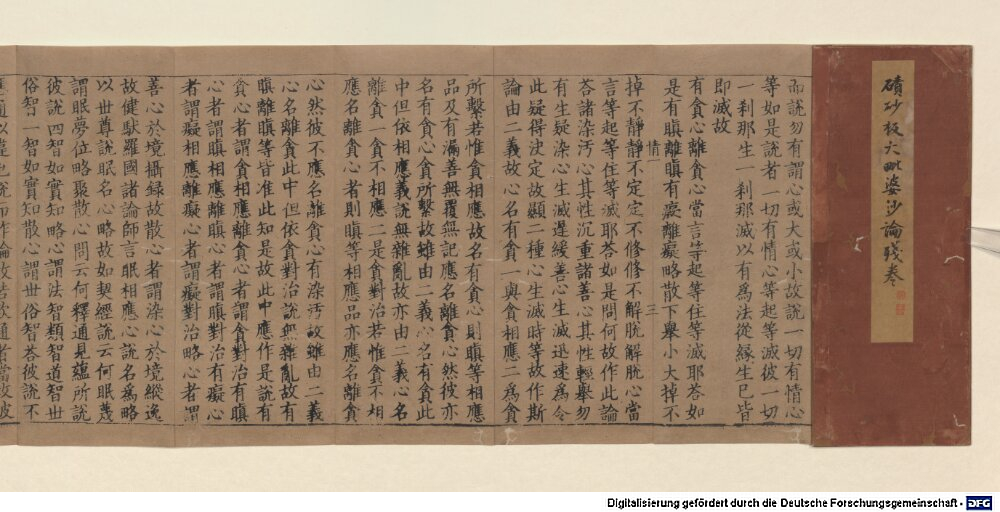 磧砂板大毗婆沙論殘卷
而說勿有謂心或大或小故說一切有情心
等如是說者一切有情心等起等滅彼一切
一剎那生一剎那滅以有為法從緣生已皆
即滅故
有貪心離貪心當言等起等住等滅耶荅如
是有瞋離瞋有癡離癡略散下舉小大掉不
情一 三
掉不靜靜不定定不修修不解脫解脫心當
言等起等住等滅耶荅如是問何故作此論
荅諸染汚心其性沉重諸善心其性輕舉勿
有生疑染心生滅遲緩善心生滅迅速為令
此疑得決定故顯二種心生滅時等故作斯
論由二義故心名有貪一與貪相應二為貪
所繫若惟貪相應故名有貪心則瞋等相應
品及有漏善無覆無記應名離貪心然彼亦
名有貪心貪所繫故雖由二義心名有貪此
中但依相應義說無雜亂故亦由二義心名
離貪一貪不相應二是貪對治若惟貪不相
應名離貪心者則瞋等相應品亦應名離貪
心然彼不應名離貪心有染汚故雖由二義
心名離貪此中但依貪對治說無雜亂故有
瞋離瞋等皆准此知是故此中應作是說有
貪心者謂貪相應離貪心者謂貪對治有瞋
心者謂瞋相應離瞋心者謂瞋對治有癡心
者謂癡相應離癡心者謂癡對治略心者謂
善心於境攝録故散心者謂染心於境縱逸
故健馱羅國諸論師言眠相應心說名為略
以世尊說眠名心略故如契經說云何眠蔑
謂眠夢位略聚散心問云何釋通見蘊所說
彼說四智如實知略心謂法智類智道智世
俗智一智如實知散心謂世俗智荅彼說不
Digitalisierung gefördert durch die Deutsche Forschungsgemeinschaft - DFG